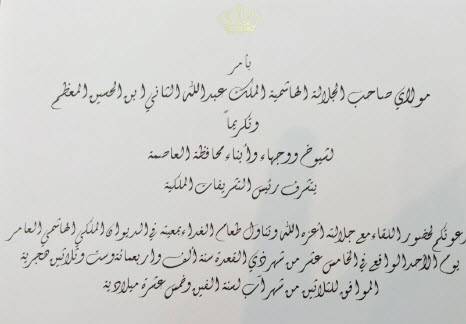 بأمر
مولاي صاحب الجلالة الهاشمية الملك عبدالله الثاني ابن الحسين المعظم
وتكريماً
لشيوخ ووجهاء وأبناء محافظة العاصمة
يتشرف رئيس التشريفات الملكية
بدعوتكم لحضور اللقاء مع جلالته أعزه الله وتناول طعام الغداء بمعيته في الديوان الملكي الهاشمي العامر
يوم الأحد الواقع في الخامس عشر من شهر ذي القعدة سنة ألف واربعمائة وست وثلاثين هجرية
الموافق للثلاثين من شهر آب لسنة الفين وخمس عشرة ميلادية